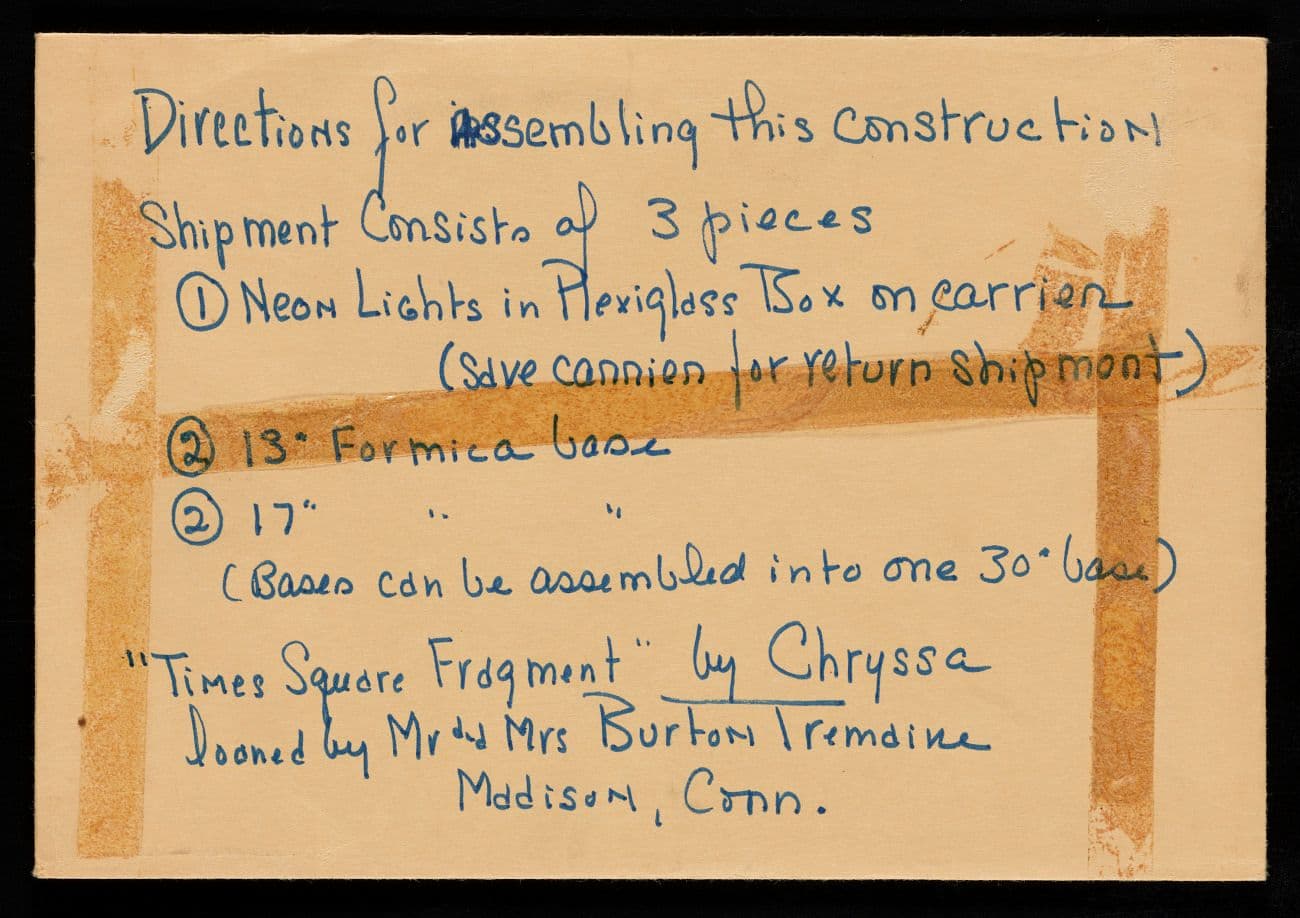 Directions for Assembling this construction
Shipment Consists of 3 pieces
① Neon Lights in Plexiglass Box on carrier
(Save carrier for return shipment)
② 13" Formica base
② 17" " "
(Bases can be assembled into one 30" base)
"Times Square Fragment" by Chryssa
loaned by Mr and Mrs Burton Tremaine
Madison, Conn.